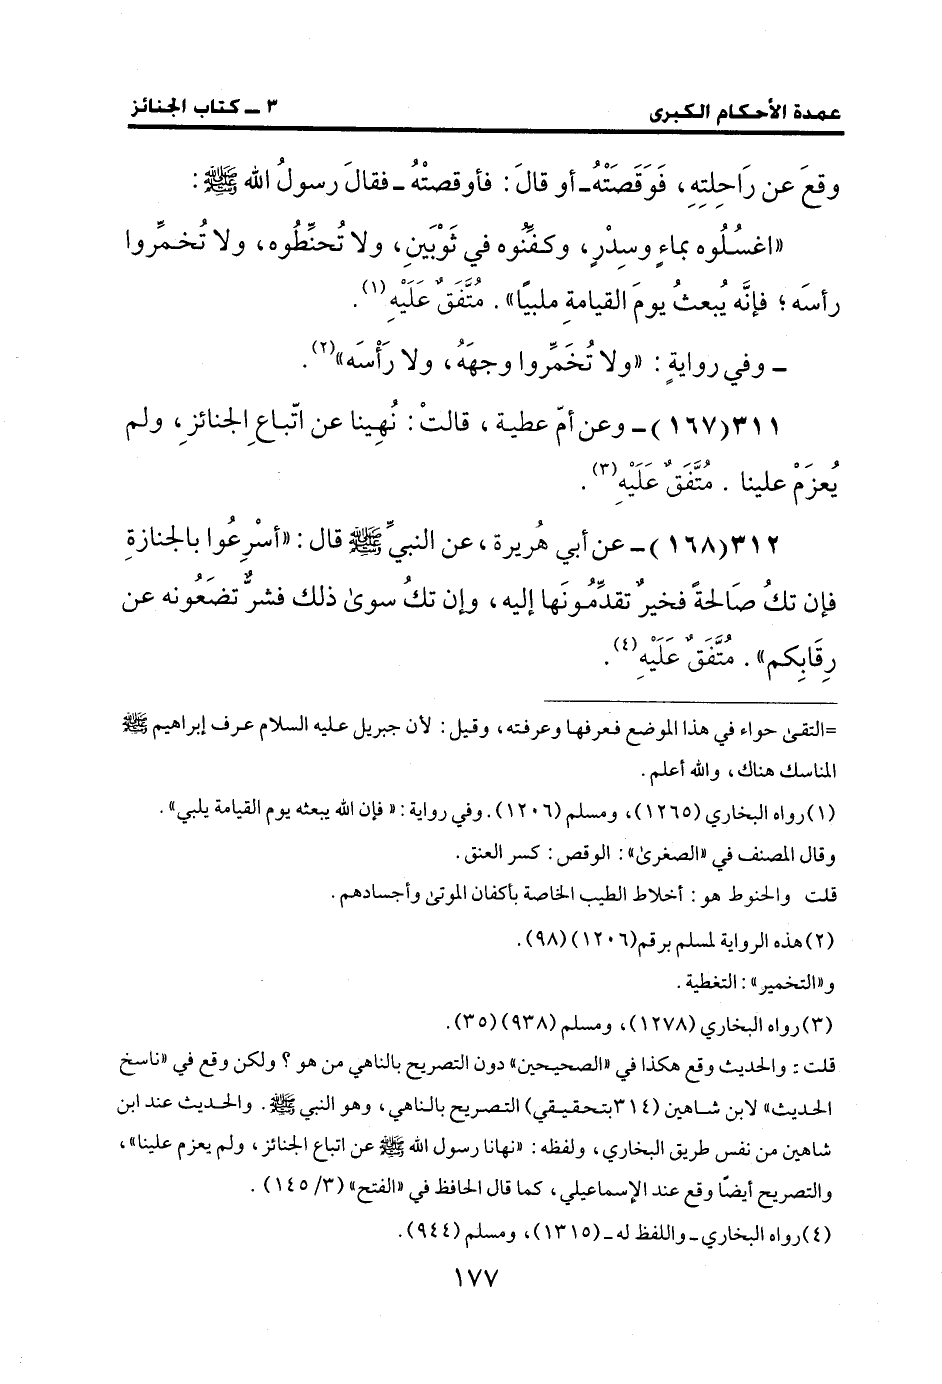 عمدة الأحكام الكبرى ٣ ـ كتاب الجنائز
وقعَ عن رَاحِلتِهِ، فَوَقَصَتْهُ ـ أو قالَ: فأوقصتْهُ ـ فقالَ رسولُ الله ﷺ:
«اغسُلُوه بماءٍ وسِدْرٍ، وكفِّنُوه في ثَوْبَينِ، ولا تُحنِّطُوه، ولا تُخمِّروا
رأسَه؛ فإنَّه يُبعثُ يومَ القيامةِ ملبيًا». مُتَّفَقٌ عَلَيْهِ(١).
ـ وفي روايةٍ: «ولا تُخَمِّروا وجهَهُ، ولا رَأْسَه»(٢).
٣١١(١٦٧) ـ وعن أمّ عطية، قالتْ: نُهِينا عن اتّباعِ الجنائزِ، ولم
يُعزَمْ علينا. مُتَّفَقٌ عَلَيْهِ(٣).
٣١٢(١٦٨) ـ عن أبي هُريرة، عن النبيِّ ﷺ قال: «أسْرِعُوا بالجنازةِ
فإن تكُ صَالحةً فخيرٌ تقدِّمُونَها إليه، وإن تكُ سوىٰ ذلك فشرٌّ تضَعُونه عن
رِقَابِكم». مُتَّفَقٌ عَلَيْهِ(٤).
=التقىٰ حواء في هذا الموضع فعرفها وعرفته، وقيل: لأن جبريل عليه السلام عرف إبراهيم ﷺ
المناسك هناك، والله أعلم.
(١) رواه البخاري (١٢٦٥)، ومسلم (١٢٠٦). وفي رواية: «فإن الله يبعثه يوم القيامة يلبي».
وقال المصنف في «الصغرىٰ»: الوقص: كسر العنق.
قلت والحنوط هو: أخلاط الطيب الخاصة بأكفان الموتىٰ وأجسادهم.
(٢) هذه الرواية لمسلم برقم (١٢٠٦)(٩٨).
و«التخمير»: التغطية.
(٣) رواه البخاري (١٢٧٨)، ومسلم (٩٣٨)(٣٥).
قلت: والحديث وقع هكذا في «الصحيحين» دون التصريح بالناهي من هو؟ ولكن وقع في «ناسخ
الحديث» لابن شاهين (٣١٤ بتحقيقي) التصريح بالناهي، وهو النبي ﷺ. والحديث عند ابن
شاهين من نفس طريق البخاري، ولفظه: «نهانا رسول الله ﷺ عن اتباع الجنائز، ولم يعزم علينا»،
والتصريح أيضًا وقع عند الإسماعيلي، كما قال الحافظ في «الفتح» (٣/ ١٤٥).
(٤) رواه البخاري ـ واللفظ له ـ (١٣١٥)، ومسلم (٩٤٤).
١٧٧